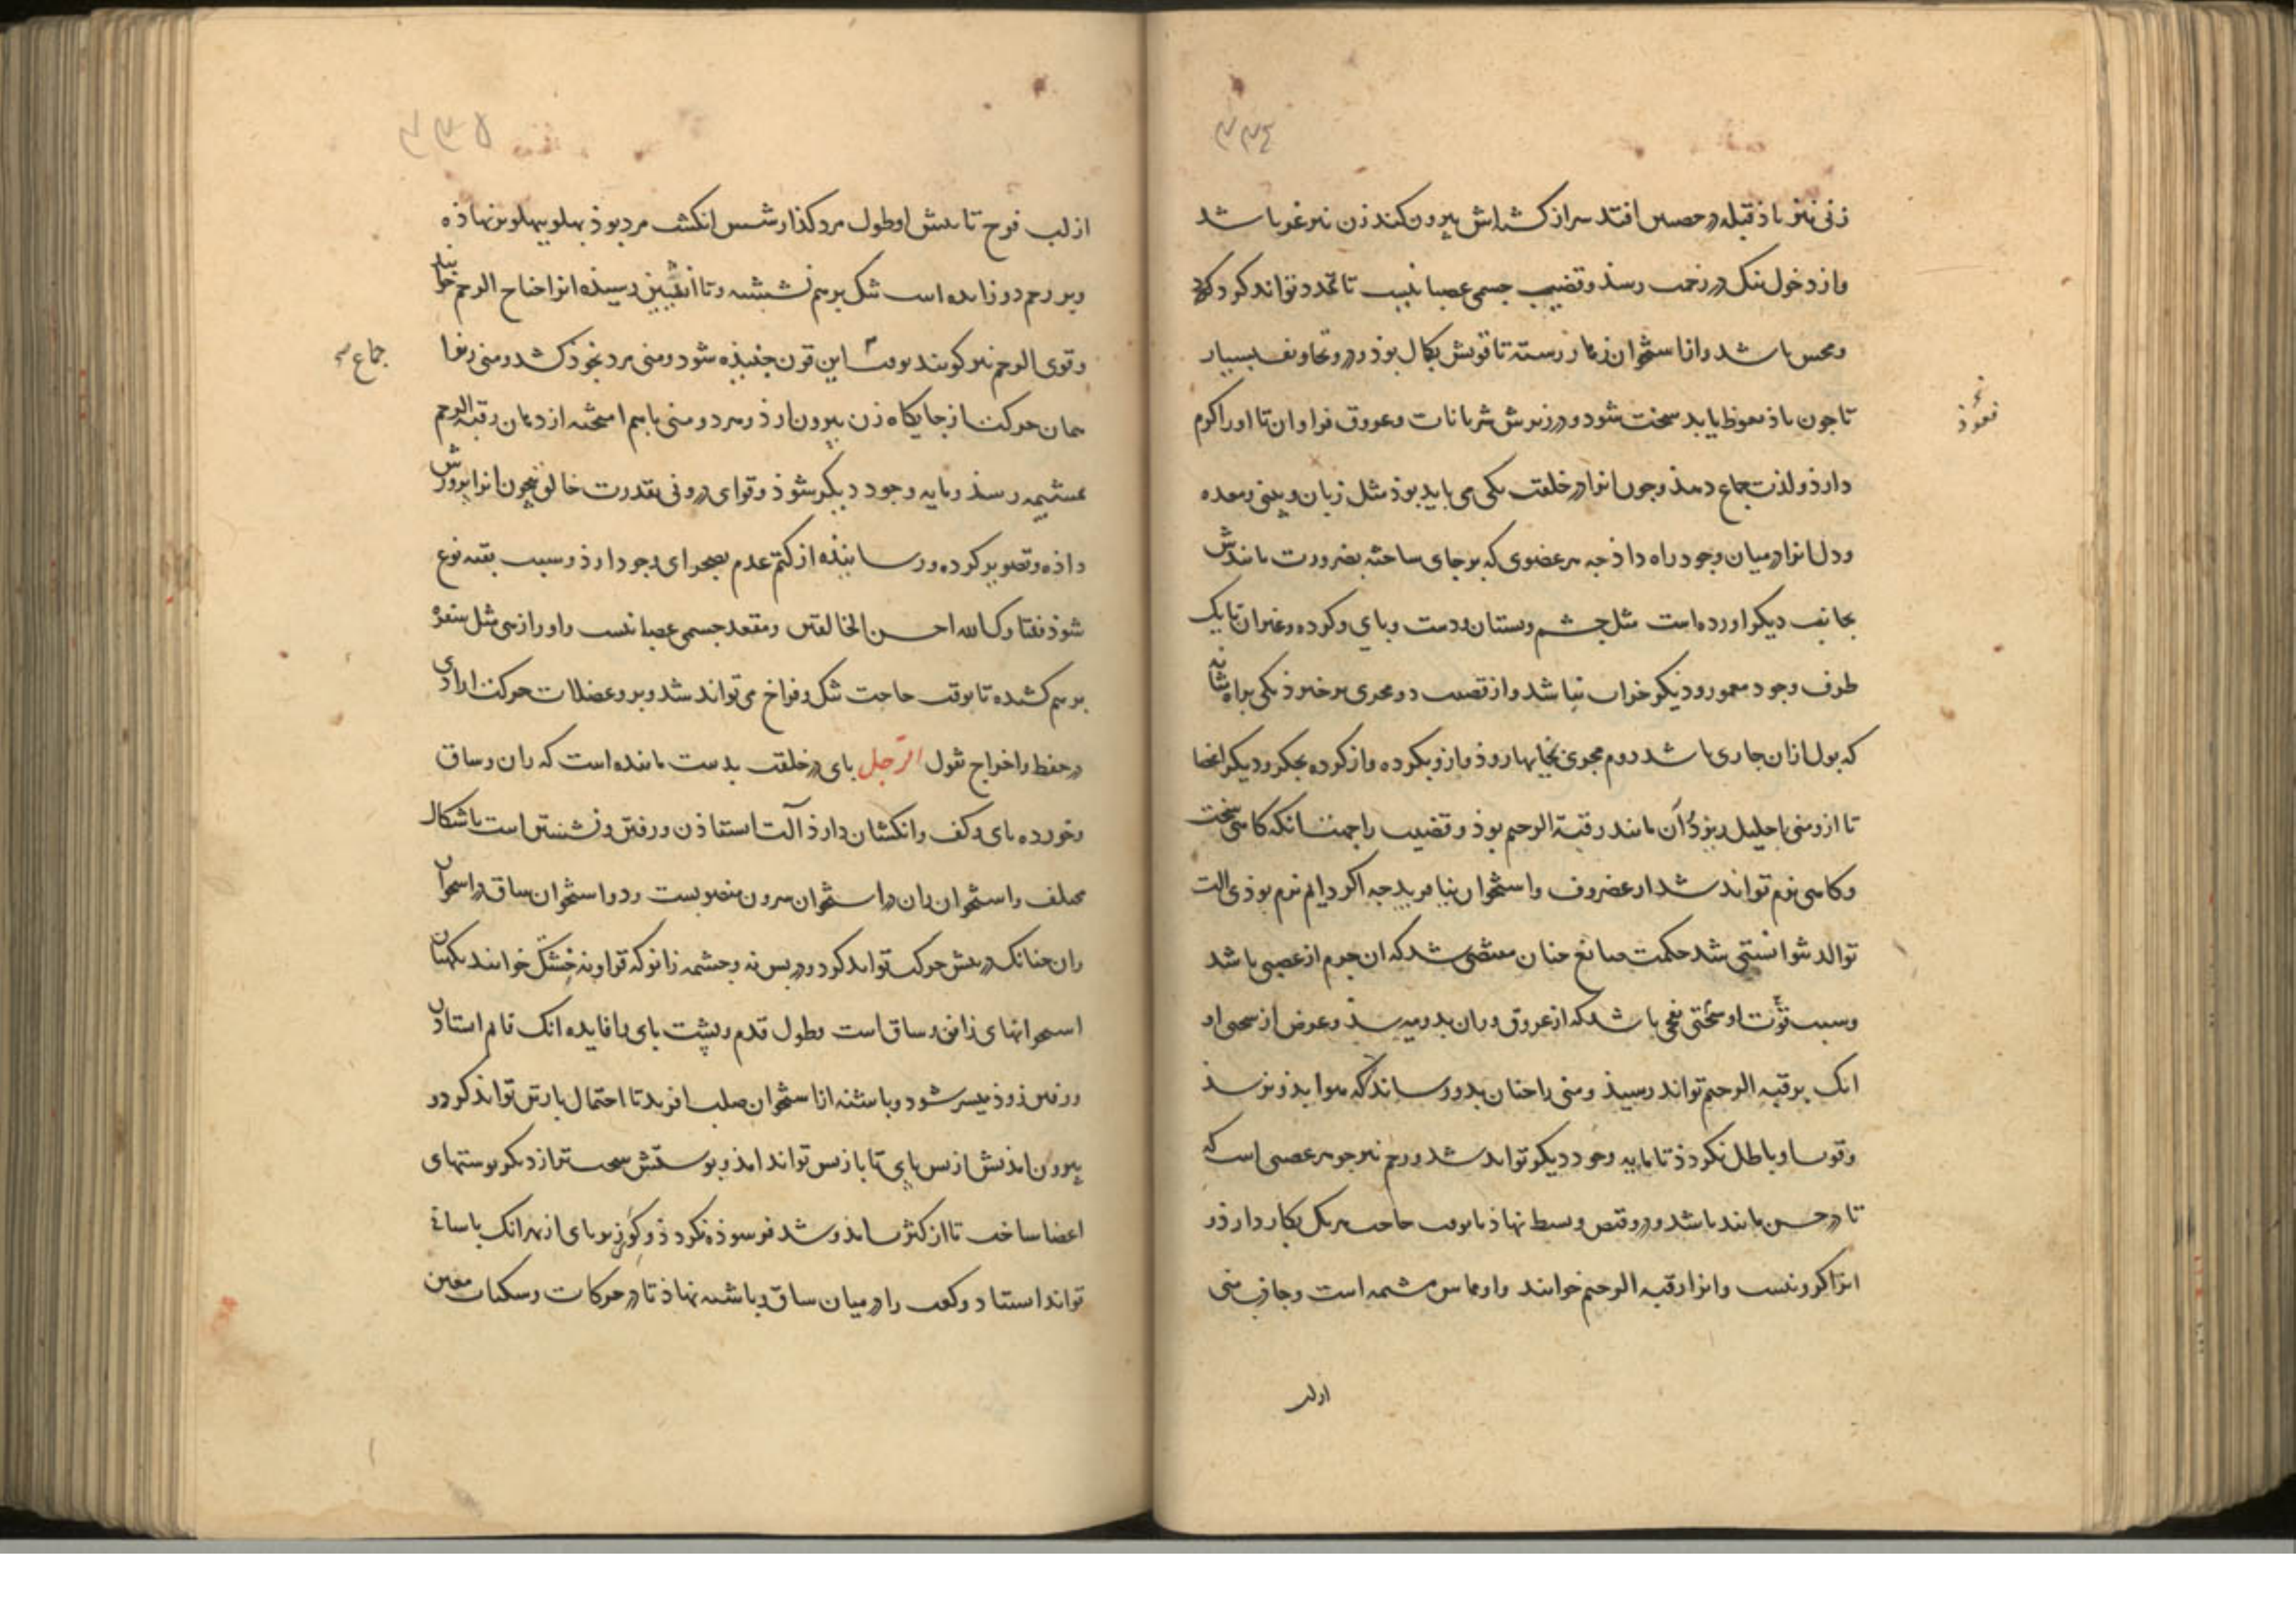 ۳۳۴
زنی نیز باد قبله در حصین افتد سر از کش‌اش بیرون کند زن نیز غر باشد
و از دخول تنک در زحمت رسد و قضیب جسمی عصبانیست تا تمدد تواند کرد
و مجس باشد و از استخوان زهار رسته تا قوتش بکمال بود و درو تجاویف بسیار
تا چون باد نعوظ یابد سخت شود و در زیرش شریانات و عروق فراوان تا او را کرم
دارذ و لذت جماع دهد و چون انرا در خلقت یکی می باید بوذ مثل زبان و بینی و معده
و دل انرا در میان وجود راه داذ چه هر عضوی که بر جای ساخته بضرورت مانندش
بجانب دیکر اورده است مثل چشم و پستان و دست و پای و کرده و غیر ان تا یک
طرف وجود معمور و دیکر خراب نباشد و از قضیب دو مجری برخیزد یکی براه مثانه
که بول ازان جاری باشد دوم مجری بخایها رود و ازو بکرده و از کرده بجکر و دیکر اعضا
تا ازو منی باحلیل ریزد و آن مانند رقبة الرحم بوذ و قضیب را جهت انکه کاهی سخت
و کاهی نرم تواند شد از غضروف و استخوان نیافرید چه اکر دایم نرم بوذی الت
توالد نشوانستی شد حکمت صانع چنان مقتضی شد که ان جرم از عصبی باشد
و سبب قوت او سختی نفخی باشد که از عروق وران بدو میرسد و غرض از سختی او
انک برقبه الرحم تواند رسید و منی را چنان بدو رساند که هوا بدو نرسد
و قوت او باطل نکردد تا مایه وجود دیکر تواند شد و رحم نیز جوهر عصبی است که
تا در حس مانند باشد و درو قبض و بسط نهاد تا بوقت حاجت هر یک بکار دارد و
انرا کرونیست و انرا رقبه الرحم خوانند و او مماس مشیمه است و جاذب منی
از لب
۳۳۵
از لب فرج تا پیش او طول مرد کذار شش انکشت مرد بوذ پهلو بپهلو برنهاذه
و بر رحم دو زایده است تنک برهم نشسته و تا انثیین رسیده انرا جناح الرحم خوانند
و قوی الرحم نیز کویند بوقت این قرن جنبیده شود و منی مرد بخود کشد و منی زن را
جماع صح
همان حرکت از جایکاه زن بیرون ارد و هر دو منی باهم امیخته از دهان رقبة الرحم
بمشیمه رسد و مایه وجود دیکر شود و قوای درونی بقدرت خالق بیچون انرا پرورش
داذه و تصویر کرده و رسانیده از کتم عدم بصحرای وجود ارد و سبب بقیه نوع
شود فتبارک الله احسن الخالقین و مقعد جسمی عصبانیست و او را ازهم مثل سفره
برهم کشیده تا بوقت حاجت تنک و فراخ می تواند شد و برو عضلات حرکت ارادی
در حفظ و اخراج ثفول الرّجل پای در خلقت بدست ماننده است که ران و ساق
و خورده پای و کف و انکشتان دارد آلت استاذن و رفتن و نشستن است باشکال
مختلف و استخوان ران در استخوان سرون منصوبست و دو استخوان ساق در استخوان
ران چنانک در پیش حرکت تواند کرد و در پس نه و چشمه زانو که قراونه خشک خوانند نکهبان
استخوانهای زانو و ساق است و طول قدم و پشت پای با فایده انک تا هم استادن
و رفتن زوذ میسر شود و پاشنه از استخوان صلب افرید تا احتمال بارش تواند کرد و
بیرون امدنش از پس پای تا باز پس تواند امد و پوستش سخت تر از دیکر پوستهای
اعضا ساخت تا از کثرت امد و شد فرسوده نکردد و کوژی پای از بهر انک باسانی
تواند استاد و کعب را در میان ساق و پاشنه نهاد تا در حرکات و سکنات معین